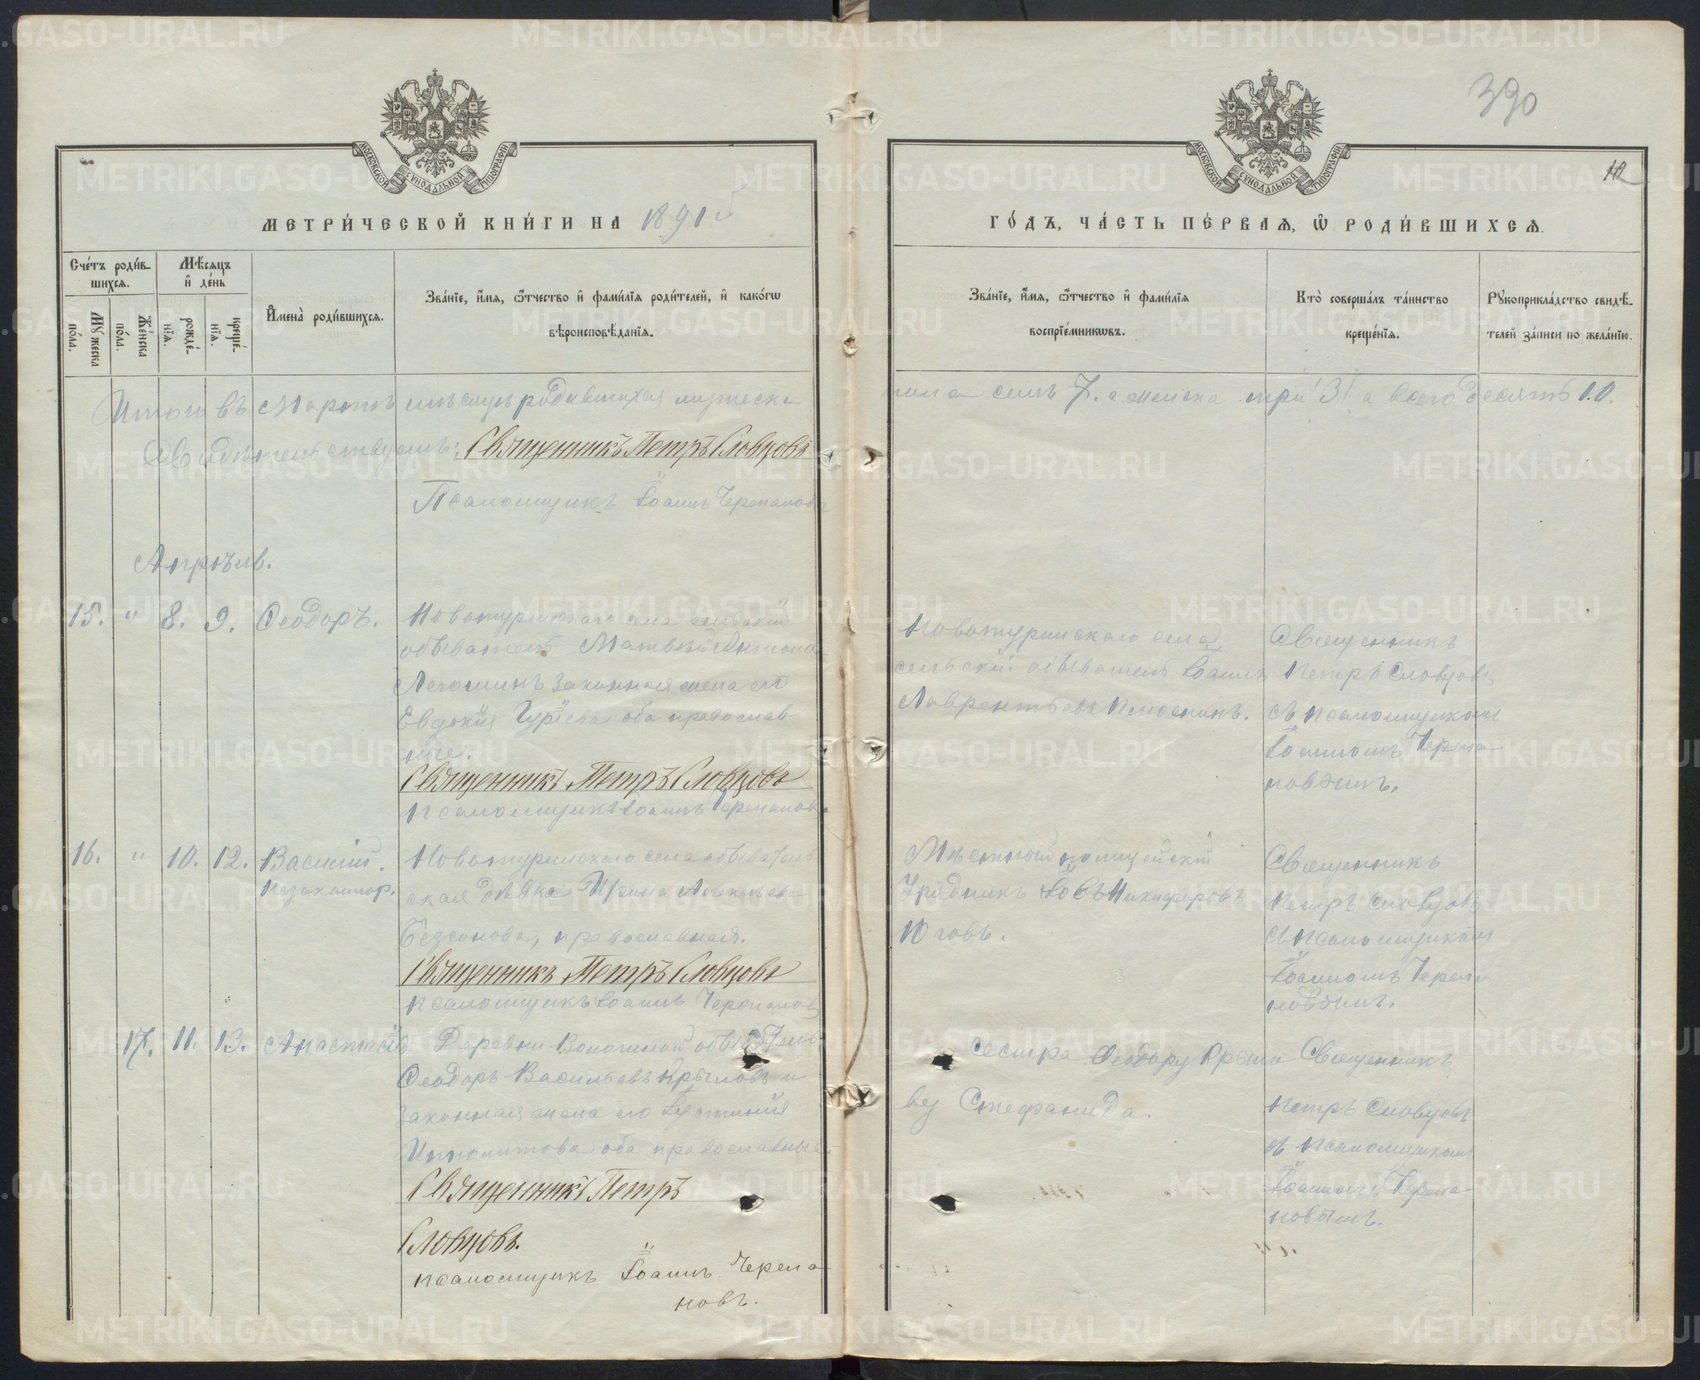 390
12
МОСКОВСКОЙ СѴНОДАЛЬНОЙ ТИПОГРАФІИ
МОСКОВСКОЙ СѴНОДАЛЬНОЙ ТИПОГРАФІИ
МЕТРИ́ЧЕСКОЙ КНИ́ГИ НА 1891
ГО́ДЪ, ЧА́СТЬ ПЕ́РВАЯ, Ѡ РОДИ́ВШИХСЯ.
Сче́тъ роди́в-
шихся.
Мѣ́сяцъ
и де́нь
Му́жеска
по́ла.
Же́нска
по́ла.
рожде́-
нїя.
креще́-
нїя.
Имена̀ роди́вшихся.
Зва́нїе, и́мя, ѻ́тчество и фами́лїя роди́телей, и како́гѡ
вѣроисповѣ́данїя.
Зва́нїе, и́мя, ѻ́тчество и фами́лїя
воспрїе́мникѡвъ.
Кто̀ соверша́лъ та́инство
креще́нїя.
Рꙋкоприкла́дство свидѣ́-
телей за́писи по жела́нїю.
Итого въ Мартѣ мѣсяцѣ родившихся мужеска
пола семь 7. а женска три 3 а всего десять 10.
Свидѣтельствуемъ: Священникъ Петръ Словцовъ
Псаломщикъ Іоаннъ Черепановъ
Апрѣль.
15. " 8. 9. Ѳеодоръ.
Новотуринскаго села сельскій
обыватель Матвѣй
законная жена его
Евдокія Гуріева оба православ
ные.
Священникъ Петръ Словцовъ
Псаломщикъ Іоаннъ Черепановъ
Новотуринскаго села
сельскій обыватель Іоаннъ
Лаврентьевъ
Священникъ
Петръ Словцовъ
съ псаломщикомъ
Іоанномъ Черепа-
новымъ.
16. " 10. 12. Василій.
незаконнор.
Новотуринскаго села обыватель
ская дѣвка Ирина
Безсонова, православная.
Священникъ Петръ Словцовъ
Псаломщикъ Іоаннъ Черепановъ
Мѣстный полицейскій
Урядникъ Іовъ Никифоровъ
Юговъ.
Священникъ
Петръ Словцовъ
съ псаломщикомъ
Іоанномъ Черепа
новымъ.
17. 11. 13. Анастасія
Деревни обыватель
Ѳеодоръ Васильевъ Крыловъ и
законная жена его Іустинія
Ипполитова оба православные.
Священникъ Петръ
Словцовъ.
псаломщикъ Іоаннъ Черепа-
новъ.
Сестра Ѳеодору Крыло
ву Стефанида.
Священникъ
Петръ Словцовъ
съ псаломщикомъ
Іоанномъ Черепа-
новымъ.
METRIKI.GASO-URAL.RU